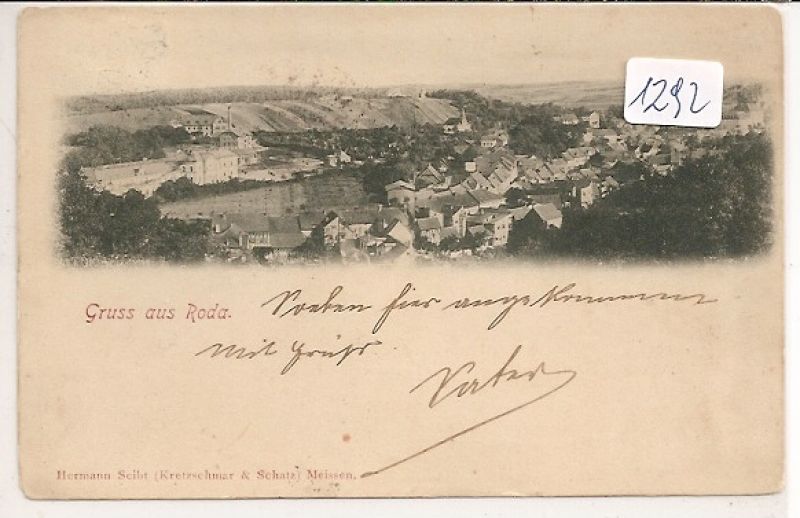 1292
Gruss aus Roda.
Soeben hier angekommen
mit Grüß.
Vater
Hermann Seibt (Kretzschmar & Schatz) Meissen.